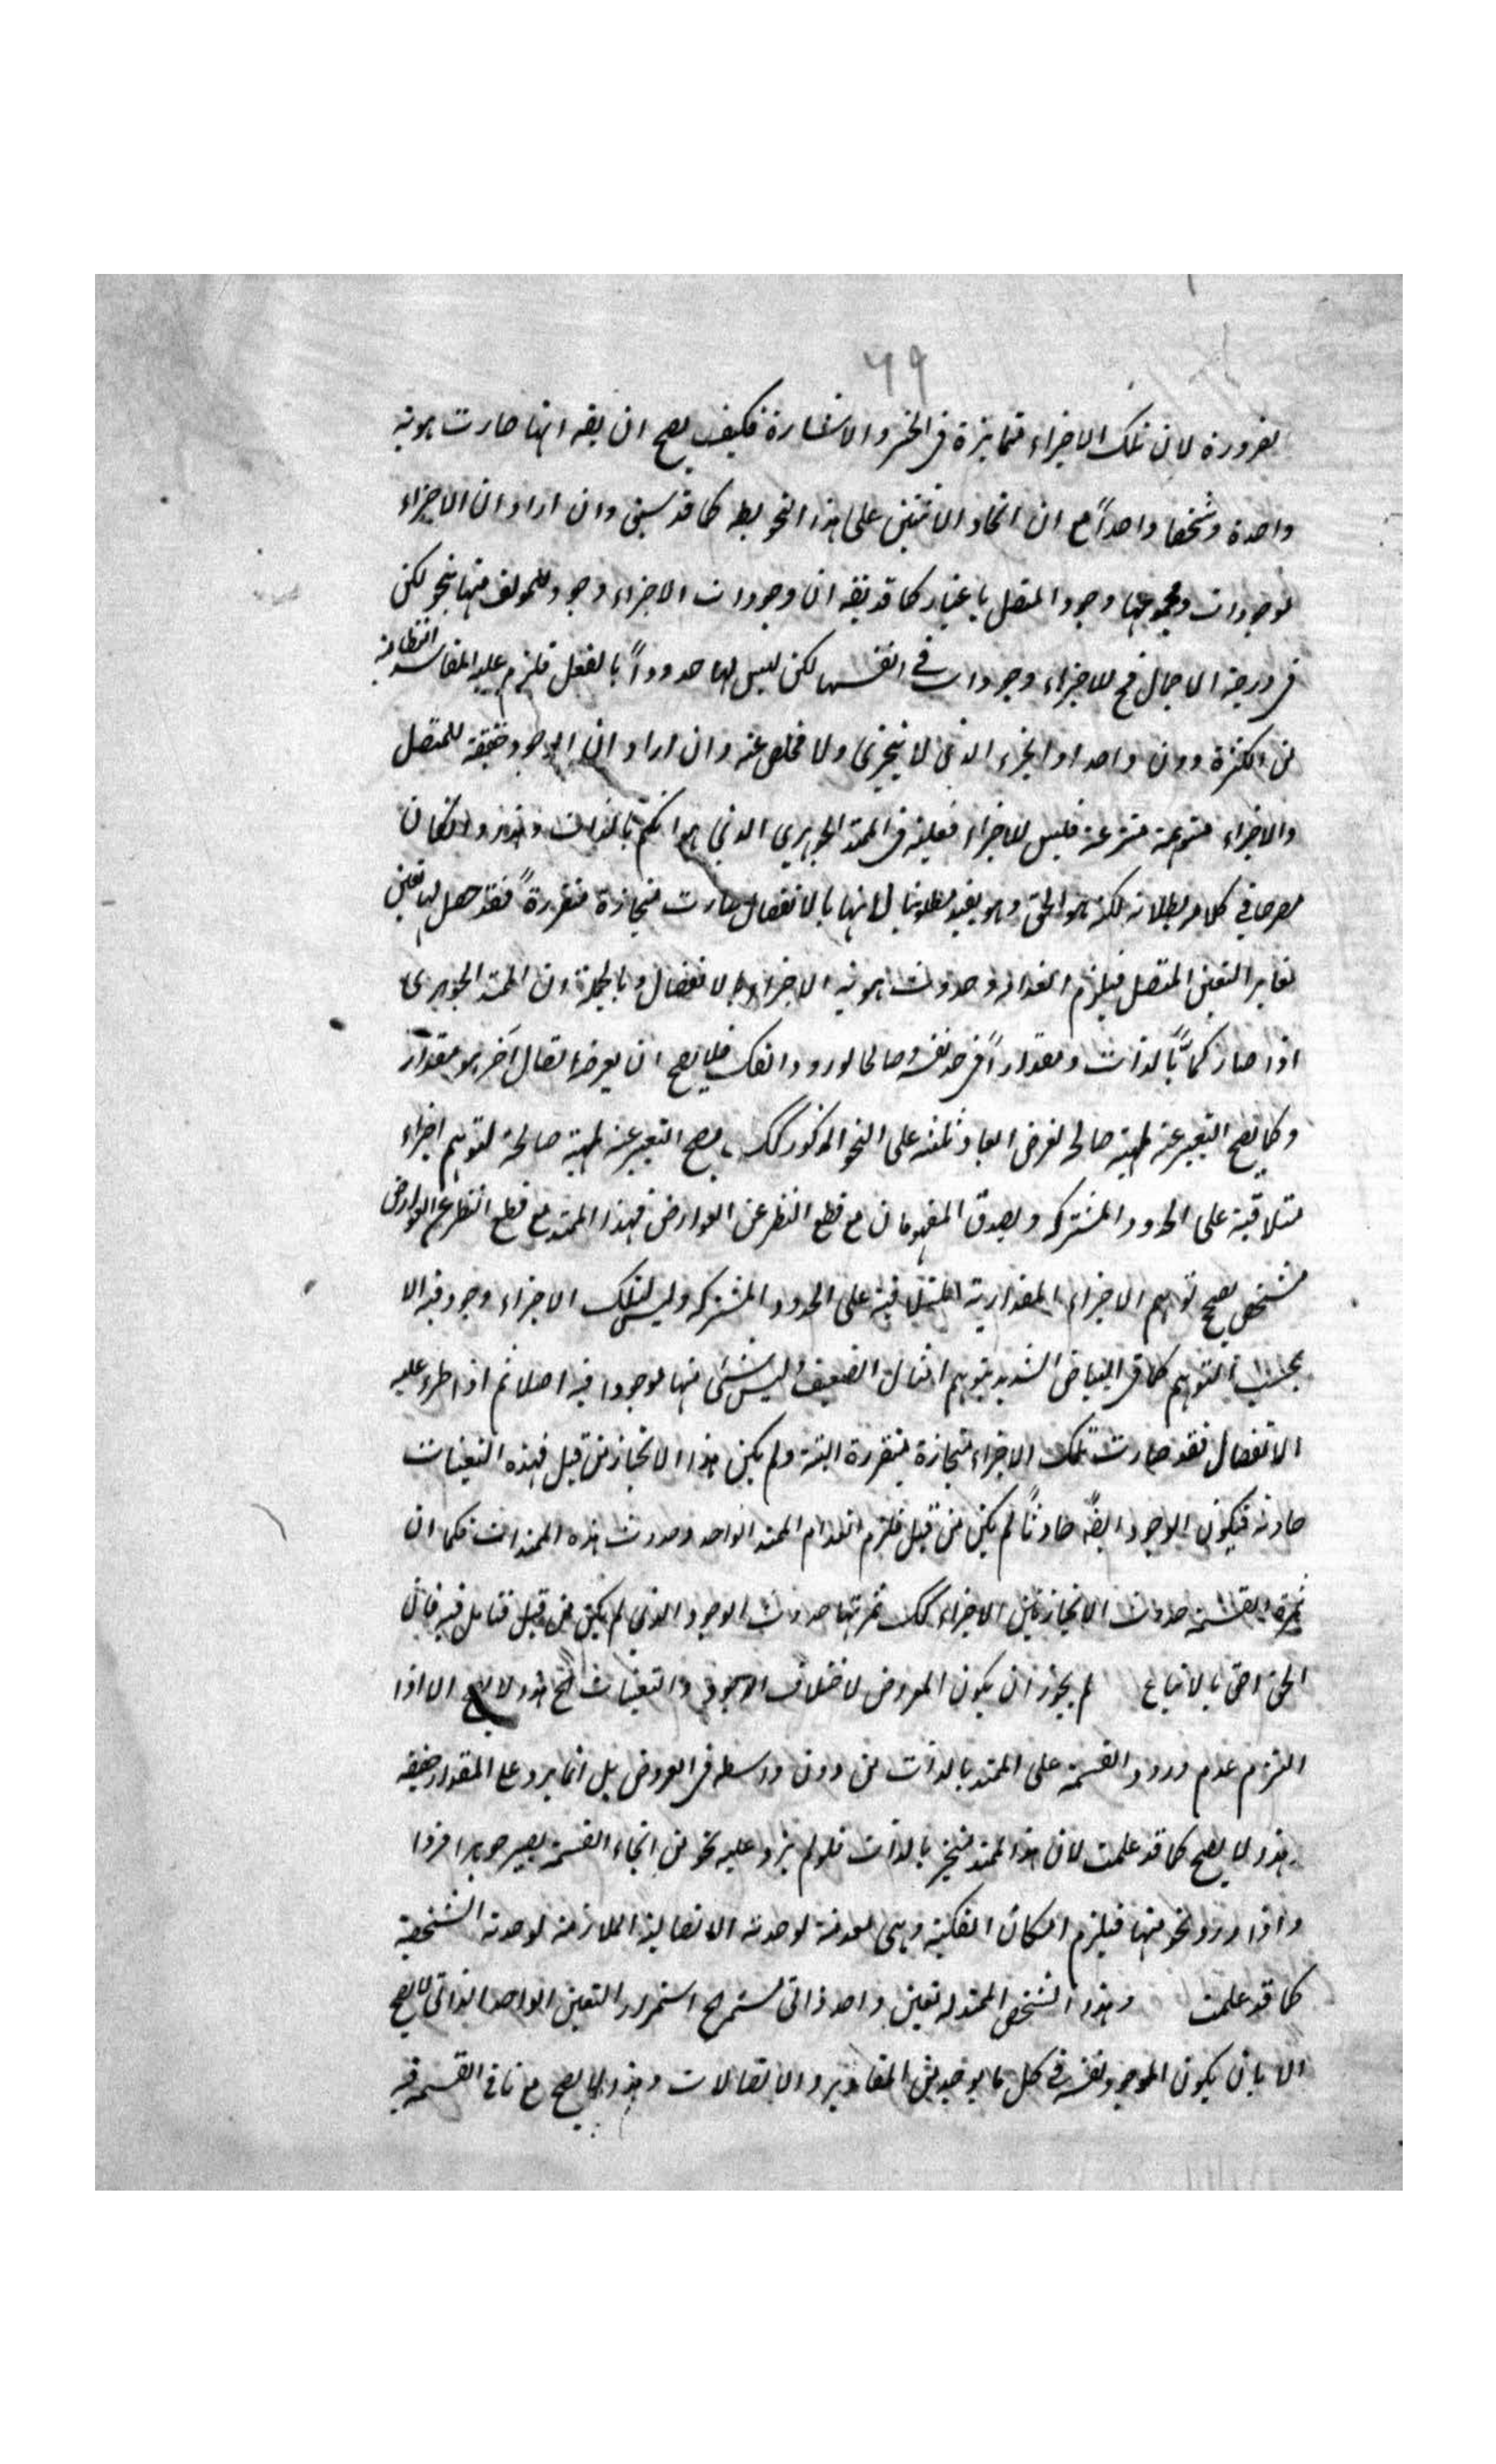 ٦٩
بضرورة لان تلك الاجزاء متمايزة فى الحس والاشارة فكيف يصح ان يقه انها صارت هوية
واحدة وشخصا واحداً مع ان اتحاد الاثنين على هذا النحو بط كما قد سبق وان اراد ان الاجزاء
موجودات ومجموعها وجود المتصل باعتبار كما قد يقه ان وجودات الاجزاء وجود للمولف منها بنحو لكن
فى درجة الاجمال فح للاجزاء وجودات فى انفسها لكن ليس لها حدوداً بالفعل فلزم عليه المفاسد النظامية
من الكثرة دون واحد او الجزء الذى لا يتجزى ولا مخلص عنه وان اراد ان الوجود حقيقة للمتصل
والاجزاء متوهمة منتزعة فليس للاجزاء فعلية فى الممتد الجوهرى الذى هو الكم بالذات وهذا وان كان
مصرحا فى كلامه بطلانه لكنه هو الحق وهو يفيد مطلوبنا لانها بالانفصال صارت منحازة متقررة فقد حصل لها تعين
مغاير التعين المتصل فيلزم انعدامه وحدوث هوية الاجزاء بالانفصال وبالجملة ان الممتد الجوهرى
اذا صار كمًّا بالذات ومقداراً فى حد نفسه وصالحا لورود الفك فلا يصح ان يعرضه اتصال آخر هو مقدار
وكما يصح التعبير عنه بماهية صالحه لفرض ابعاد ثلثه على النحو المذكور كك يصح التعبير عنه بماهية صالحة لتوهم اجزاء
متلاقية على الحدود المشتركه ويصدق المفهومان مع قطع النظر عن العوارض فهذا الممتد مع قطع النظر عن العوارض
مشخص يصح توهم الاجزاء المقدارية المتلاقية على الحدود المشتركه وليس لتلك الاجزاء وجود فيه الا
بحسب التوهم كما فى البياض الشديد يتوهم امثال الضعيف وليس شئ منها موجودا فيه اصلا ثم اذا طرء عليه
الانفصال فقد صارت تلك الاجزاء منحازة متقررة البتة ولم يكن هذا الانحياز من قبل فهذه التعينات
حادثة فيكون الوجود ايضًا حادثًا لم يكن من قبل فلزم انعدام الممتد الواحد وحدوث هذه الممتدات فكما ان
ثمرة القسمة حدوث الانحياز بين الاجزاء كك ثمرتها حدوث الوجود الذى لم يكن من قبل فتامل فيه فان
الحق احق بالاتباع لم يجوز ان يكون المعروض لاختلاف الوجود والتعينات فح هذا لا يصح الا اذا
التزم عدم ورود القسمة على الممتد بالذات من دون واسطه فى العروض بل انما يرد على المقدار حقيقة
هذا لا يصح كما قد علمت لان هذا الممتد متجز بالذات فلو لم يرد عليه نحو من انحاء القسمة يصير جوهرا فردا
واذا ورد نحو منها فيلزم امكان الفكية وهى معدمة لوحدته الاتصالية الملازمة لوحدته الشخصية
كما قد علمت وهذا الشخص الممتد له تعين واحد ذاتى مستمر مع استمرار التعين الواحد الذاتى لا يصح
الا بان يكون الموجود نفسه فى كل ما يوجد من المقادير والاتصالات وهذا لا يصح مع تافى القسمة فيه